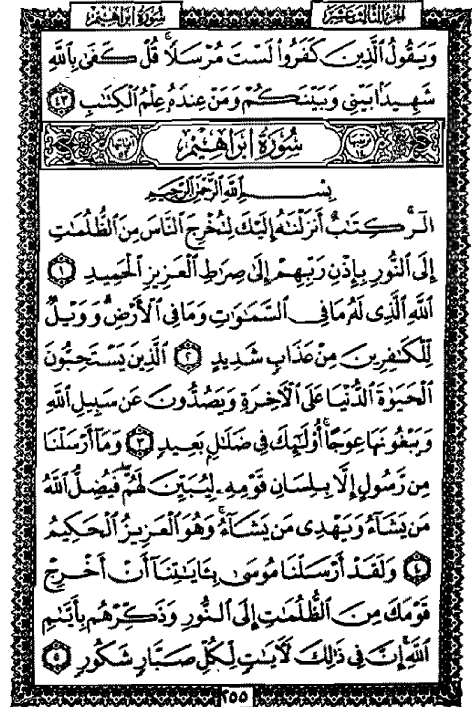 الجزء الثالث عشر
سورة ابراهيم
وَيَقُولُ ٱلَّذِينَ كَفَرُوا۟ لَسْتَ مُرْسَلًا ۚ قُلْ كَفَىٰ بِٱللَّهِ
شَهِيدًۢا بَيْنِى وَبَيْنَكُمْ وَمَنْ عِندَهُۥ عِلْمُ ٱلْكِتَٰبِ ٤٣
سُورَةُ ابْرَاهِيْمَ
بِسْمِ ٱللَّهِ ٱلرَّحْمَٰنِ ٱلرَّحِيمِ
الٓر ۚ كِتَٰبٌ أَنزَلْنَٰهُ إِلَيْكَ لِتُخْرِجَ ٱلنَّاسَ مِنَ ٱلظُّلُمَٰتِ
إِلَى ٱلنُّورِ بِإِذْنِ رَبِّهِمْ إِلَىٰ صِرَٰطِ ٱلْعَزِيزِ ٱلْحَمِيدِ ١
ٱللَّهِ ٱلَّذِى لَهُۥ مَا فِى ٱلسَّمَٰوَٰتِ وَمَا فِى ٱلْأَرْضِ ۗ وَوَيْلٌ
لِّلْكَٰفِرِينَ مِنْ عَذَابٍ شَدِيدٍ ٢ ٱلَّذِينَ يَسْتَحِبُّونَ
ٱلْحَيَوٰةَ ٱلدُّنْيَا عَلَى ٱلْءَاخِرَةِ وَيَصُدُّونَ عَن سَبِيلِ ٱللَّهِ
وَيَبْغُونَهَا عِوَجًا ۚ أُو۟لَٰٓئِكَ فِى ضَلَٰلٍۭ بَعِيدٍ ٣ وَمَآ أَرْسَلْنَا
مِن رَّسُولٍ إِلَّا بِلِسَانِ قَوْمِهِۦ لِيُبَيِّنَ لَهُمْ ۖ فَيُضِلُّ ٱللَّهُ
مَن يَشَآءُ وَيَهْدِى مَن يَشَآءُ ۚ وَهُوَ ٱلْعَزِيزُ ٱلْحَكِيمُ
٤ وَلَقَدْ أَرْسَلْنَا مُوسَىٰ بِـَٔايَٰتِنَآ أَنْ أَخْرِجْ
قَوْمَكَ مِنَ ٱلظُّلُمَٰتِ إِلَى ٱلنُّورِ وَذَكِّرْهُم بِأَيَّىٰمِ
ٱللَّهِ ۚ إِنَّ فِى ذَٰلِكَ لَءَايَٰتٍ لِّكُلِّ صَبَّارٍ شَكُورٍ ٥
٢٥٥